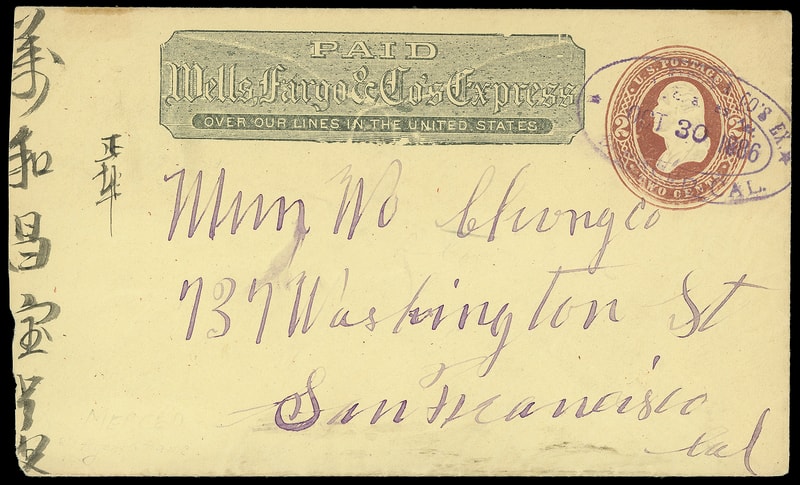 PAID
Wells, Fargo & Co's Express
OVER OUR LINES IN THE UNITED STATES
U.S. POSTAGE
TWO CENTS
2 2
CO'S EX.
OCT 30 1886
CAL.
Mun Wo Chung co
737 Washington St
San Francisco
Cal
萬和昌宝号